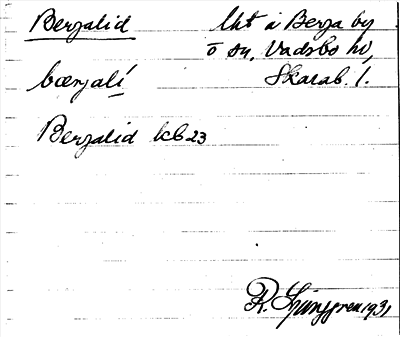 Berzalid
Lht å Berga by
ö sn, Vadsbo hd,
Skarab. l.
bærjalí
Berzalid kb 23
R. Ljunggren 1931